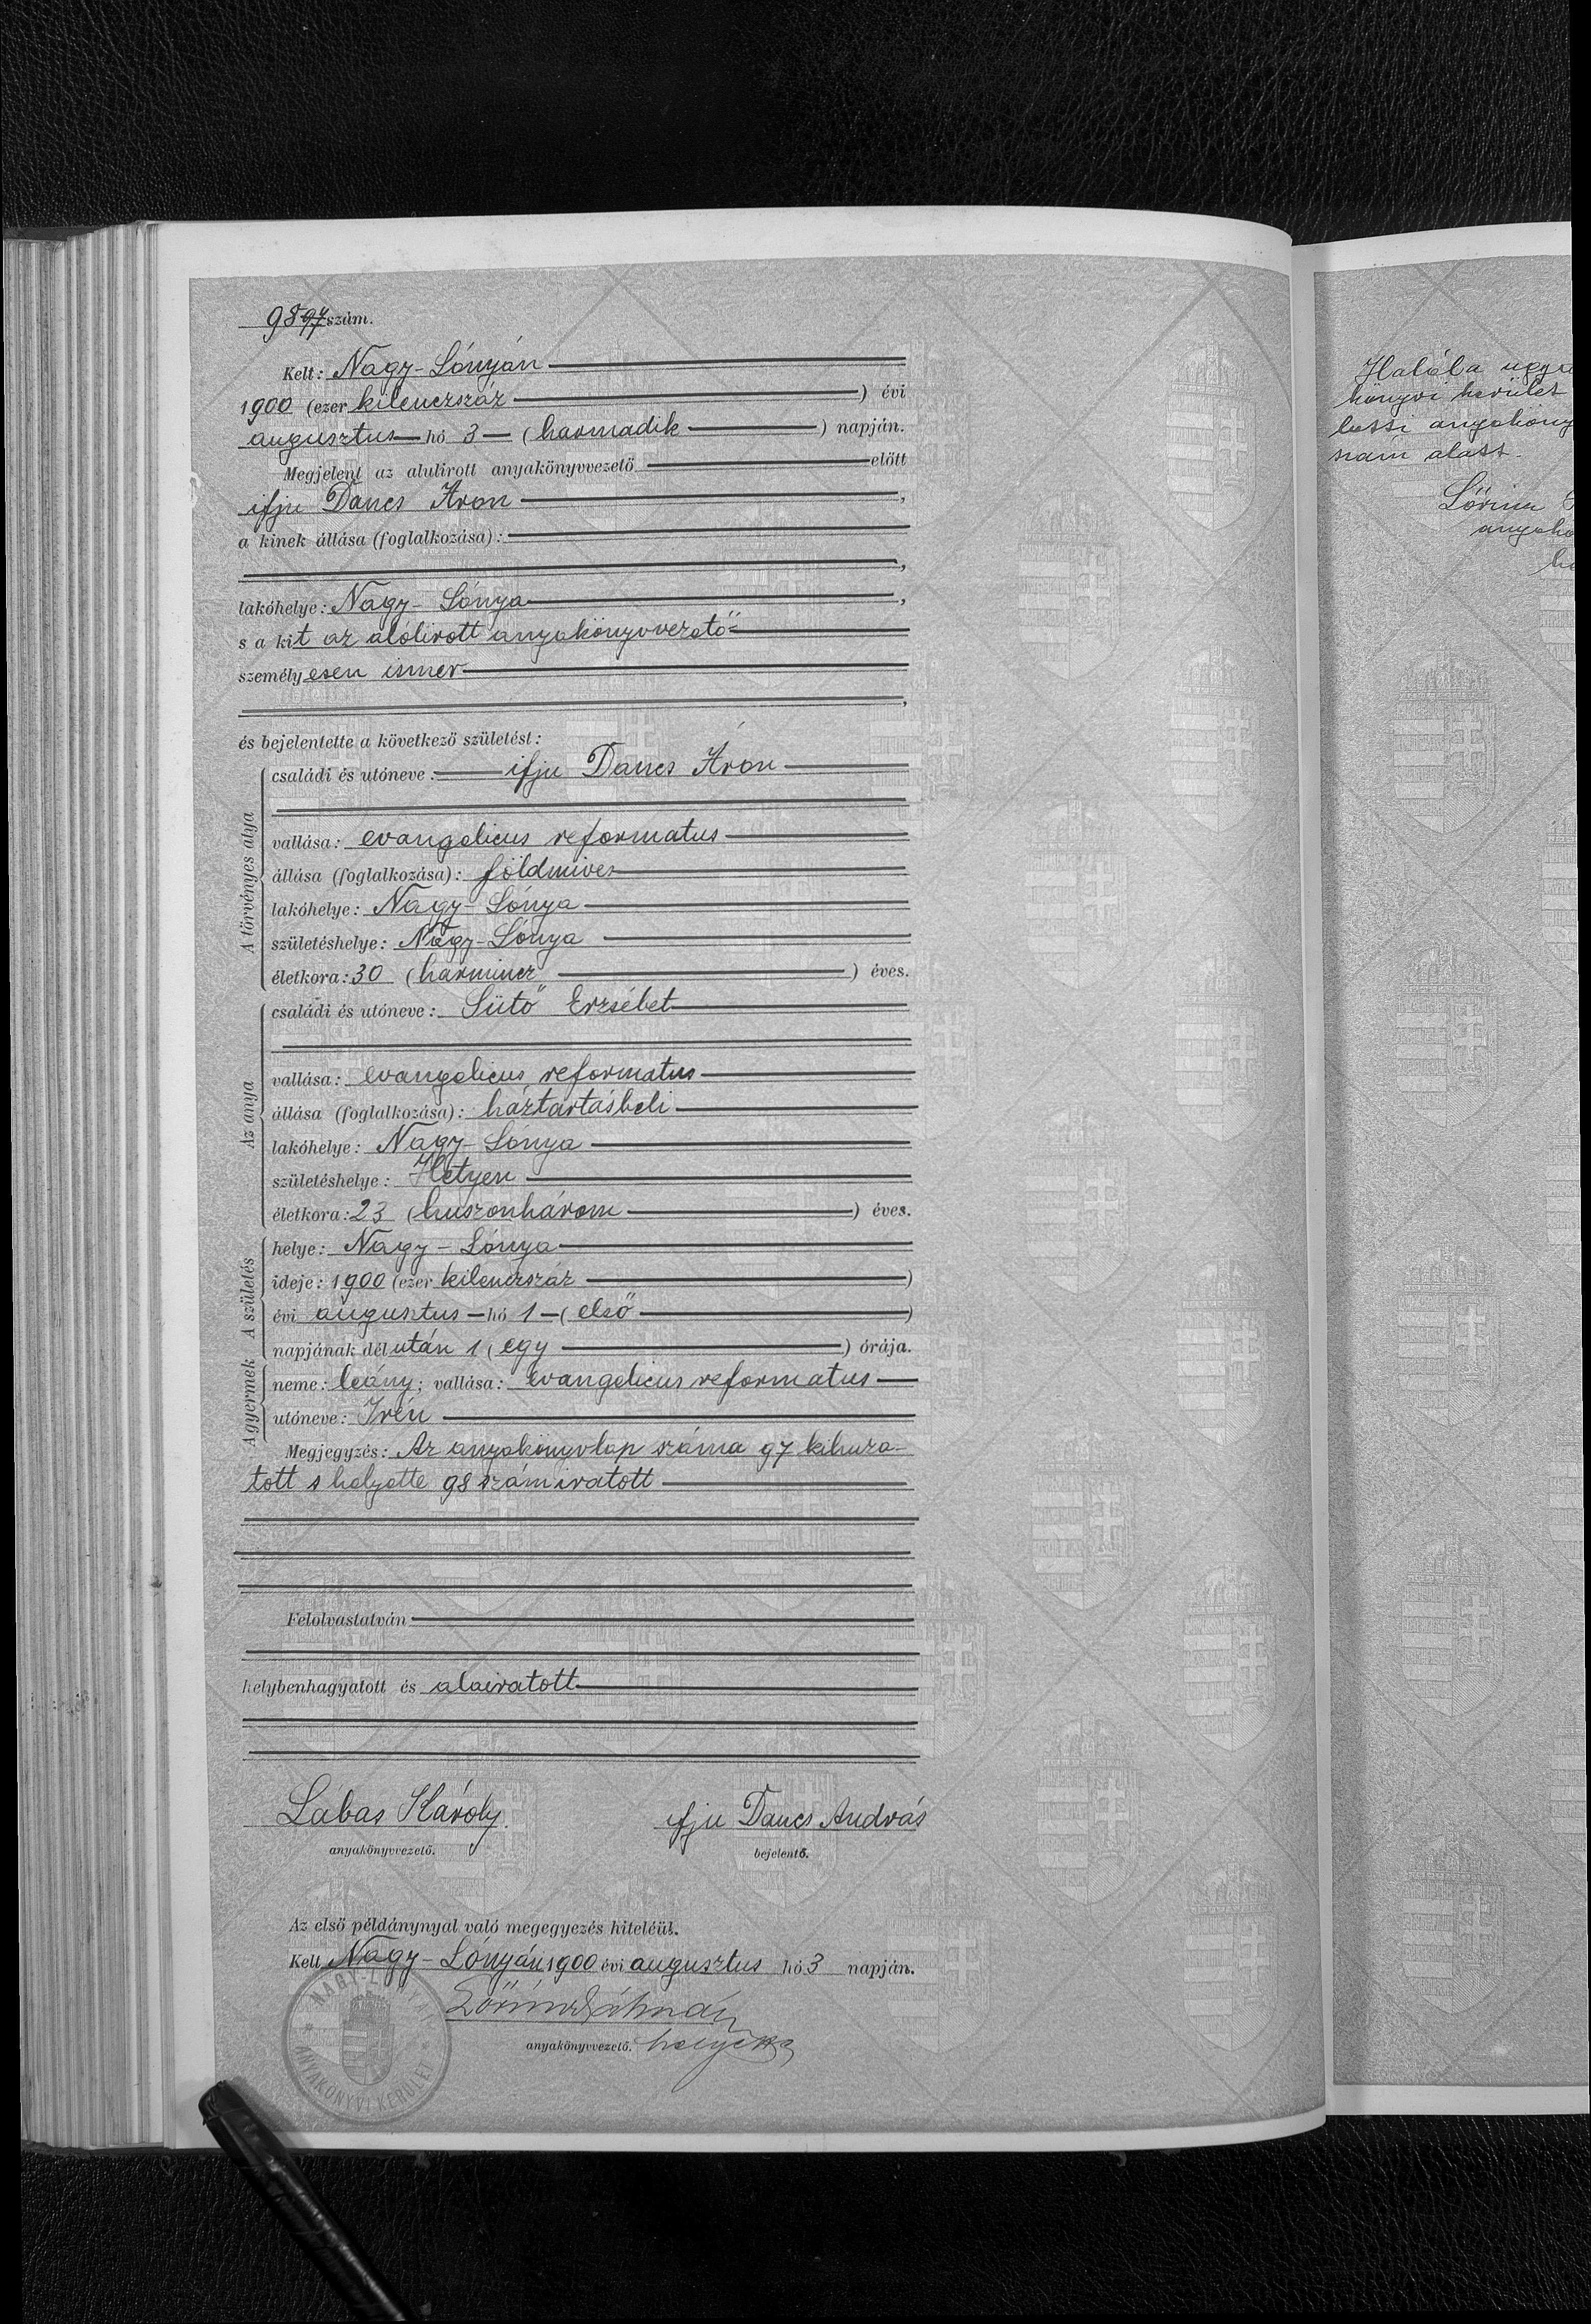 98 97 szám.
Kelt: Nagy-Lónyán
1900 (ezer kilenczszáz) évi
augusztus hó 3 (harmadik) napján.
Megjelent az alulirott anyakönyvvezető előtt
ifju Dancs Áron,
a kinek állása (foglalkozása):
,
lakóhelye: Nagy-Lónya,
s a kit az alólirott anyakönyvvezető
személyesen ismer
,
és bejelentette a következő születést:
A törvényes atya
családi és utóneve: ifju Dancs Áron
vallása: evangelicus reformatus
állása (foglalkozása): földmives
lakóhelye: Nagy-Lónya
születéshelye: Nagy-Lónya
életkora: 30 (harmincz) éves.
Az anya
családi és utóneve: Sütő Erzsébet
vallása: evangelicus reformatus
állása (foglalkozása): háztartásbeli
lakóhelye: Nagy-Lónya
születéshelye: Hetyen
életkora: 23 (huszonhárom) éves.
A születés
helye: Nagy-Lónya
ideje: 1900 (ezer kilenczszáz)
évi augusztus hó 1 (első)
napjának délután 1 (egy) órája.
A gyermek
neme: leány; vallása: evangelicus reformatus
utóneve: Irén
Megjegyzés: Az anyakönyvlap száma 97 kihuza-
tott s helyette 98 szám iratott
Felolvastatván
helybenhagyatott és alairatott
Lábas Károly ifju Dancs András
anyakönyvvezető. bejelentő.
Az első példánynyal való megegyezés hiteléül.
Kelt Nagy-Lónyán 1900 évi augusztus hó 3 napján.
Lőrincz Kálmán
anyakönyvvezető. helyettes
NAGY-LÓNYAI ANYAKÖNYVI KERÜLET
Halála
könyvi kerület
lotti
szám alatt.
Lőrincz